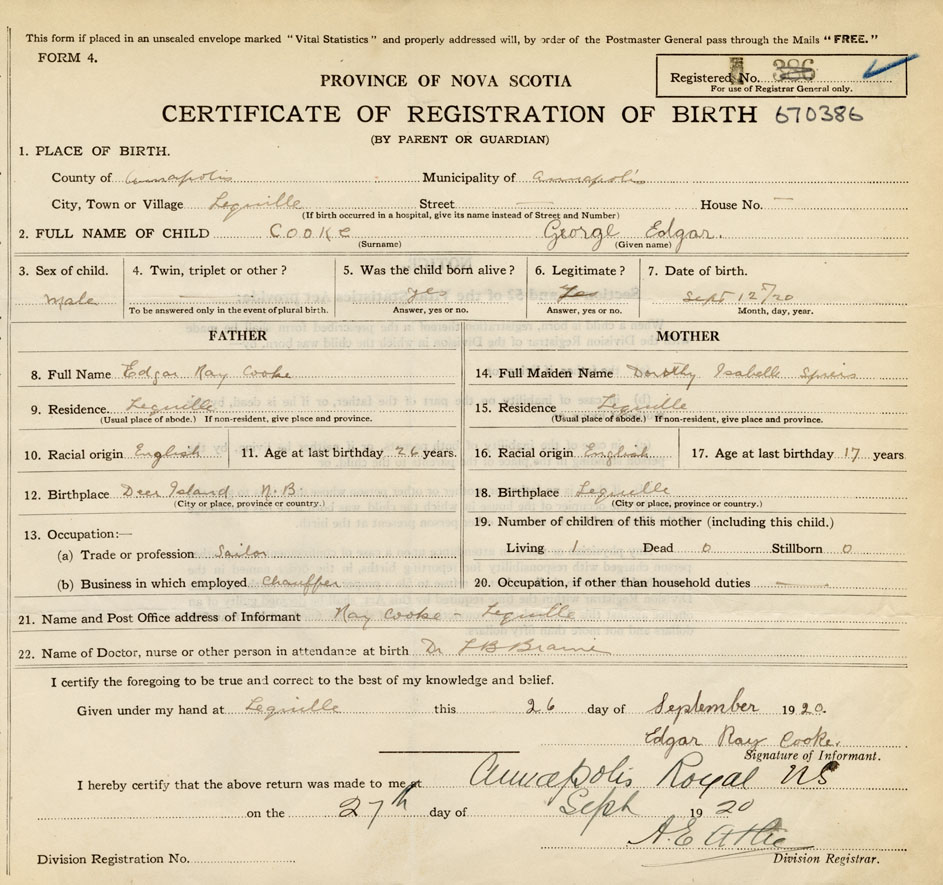 This form if placed in an unsealed envelope marked "Vital Statistics" and properly addressed will, by order of the Postmaster General pass through the Mails "FREE."
FORM 4.
Registered No. 386
For use of Registrar General only.
PROVINCE OF NOVA SCOTIA
CERTIFICATE OF REGISTRATION OF BIRTH 670386
(BY PARENT OR GUARDIAN)
1. PLACE OF BIRTH.
County of Annapolis Municipality of Annapolis
City, Town or Village Lequille Street — House No. —
(If birth occurred in a hospital, give its name instead of Street and Number)
2. FULL NAME OF CHILD COOKE George Edgar.
(Surname) (Given name)
3. Sex of child. 4. Twin, triplet or other? 5. Was the child born alive? 6. Legitimate? 7. Date of birth.
Male — yes Yes Sept 12th/20
To be answered only in the event of plural birth. Answer, yes or no. Answer, yes or no. Month, day, year.
FATHER MOTHER
8. Full Name Edgar Ray Cooke 14. Full Maiden Name Dorothy Isabell
9. Residence. Lequille 15. Residence Lequille
(Usual place of abode.) If non-resident, give place and province. (Usual place of abode.) If non-resident, give place and province.
10. Racial origin English 11. Age at last birthday 26 years. 16. Racial origin English 17. Age at last birthday 17 years
12. Birthplace Deer Island N.B. 18. Birthplace Lequille
(City or place, province or country.) (City or place, province or country.)
13. Occupation:— 19. Number of children of this mother (including this child.)
(a) Trade or profession Sailor Living 1 Dead 0 Stillborn 0
(b) Business in which employed Chauffer 20. Occupation, if other than household duties —
21. Name and Post Office address of Informant Ray Cooke - Lequille
22. Name of Doctor, nurse or other person in attendance at birth Dr L B Braine
I certify the foregoing to be true and correct to the best of my knowledge and belief.
Given under my hand at Lequille this 26 day of September 1920.
Edgar Ray Cooke.
Signature of Informant.
I hereby certify that the above return was made to me at Annapolis Royal NS
on the 27th day of Sept 1920
A.E.
Division Registration No. Division Registrar.